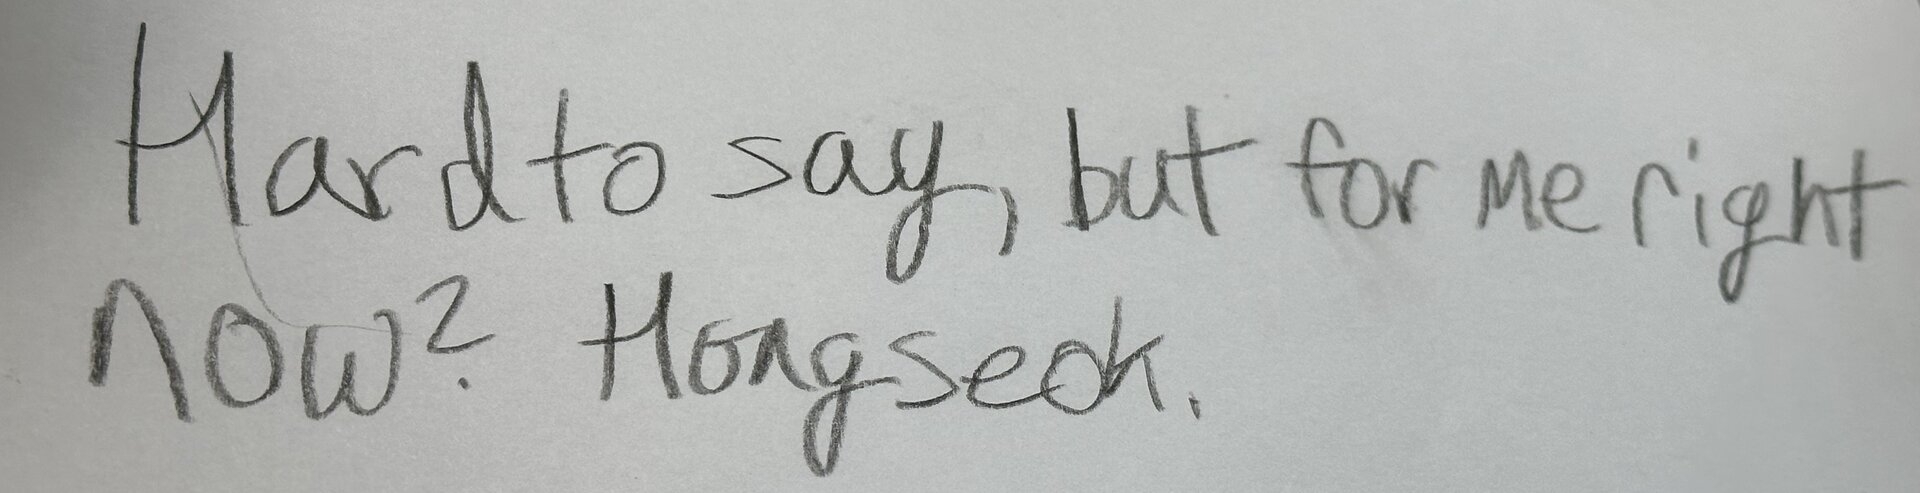 Hard to say, but for me right
now? Hongseok.